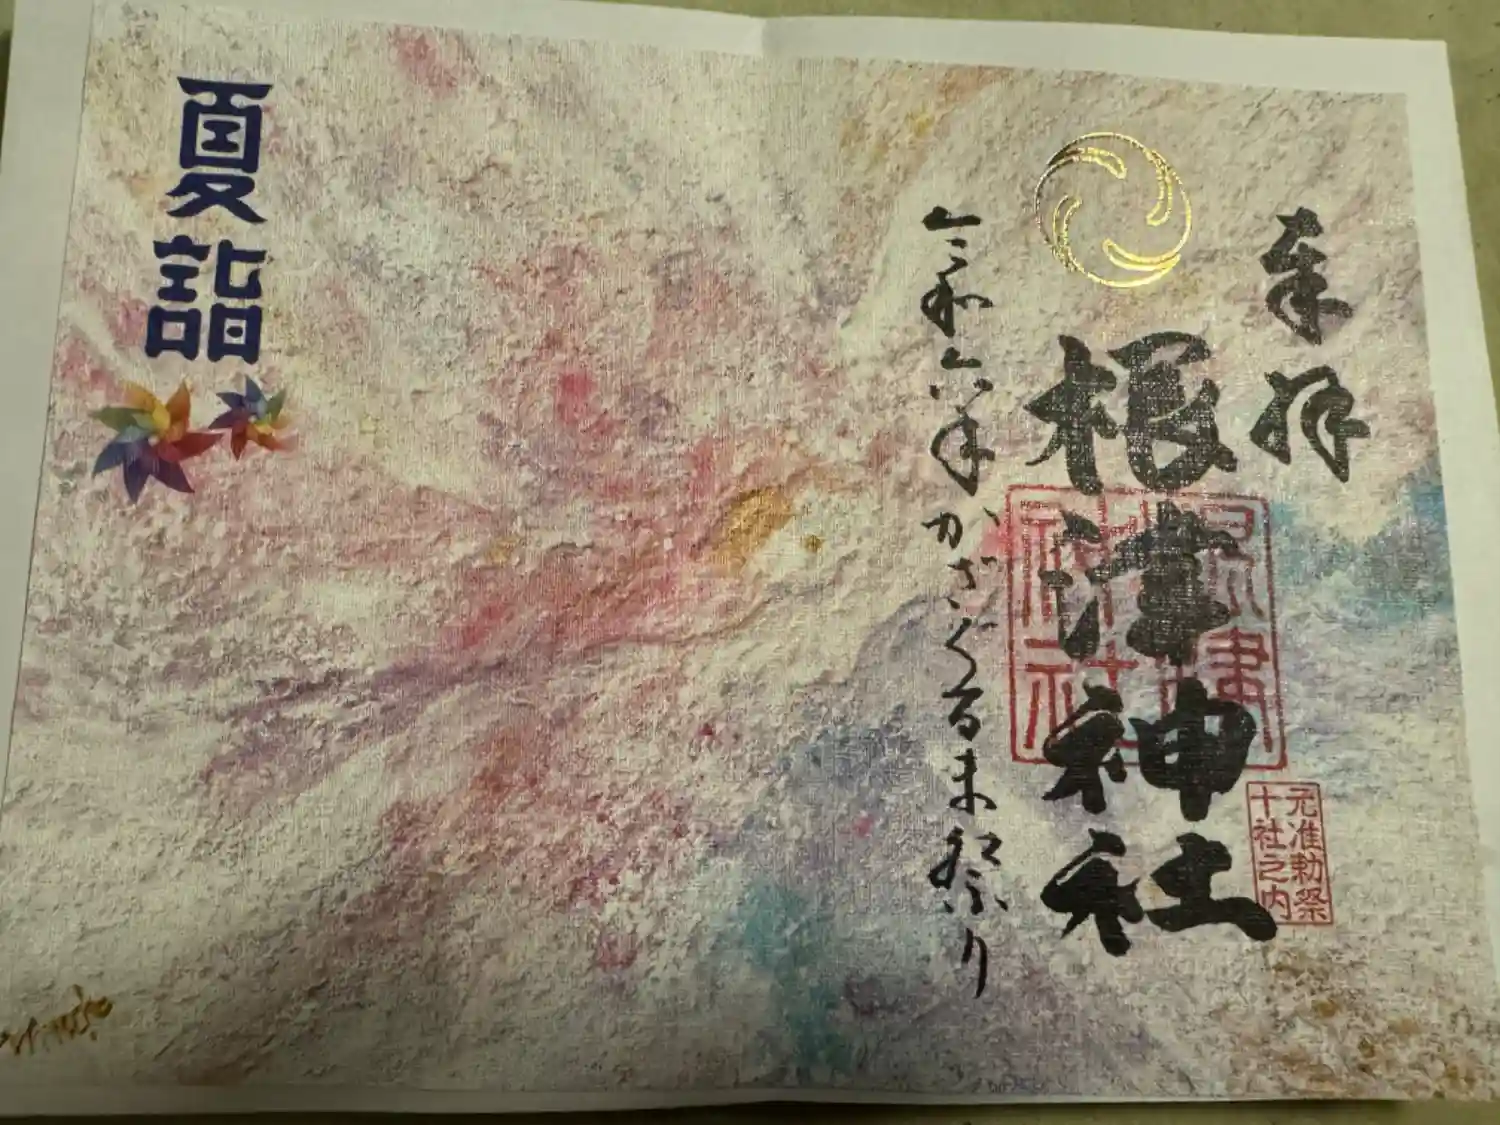 奉拝
根津神社
根津神社
元准勅祭
十社之内
令和六年かざぐるま祭り
夏詣